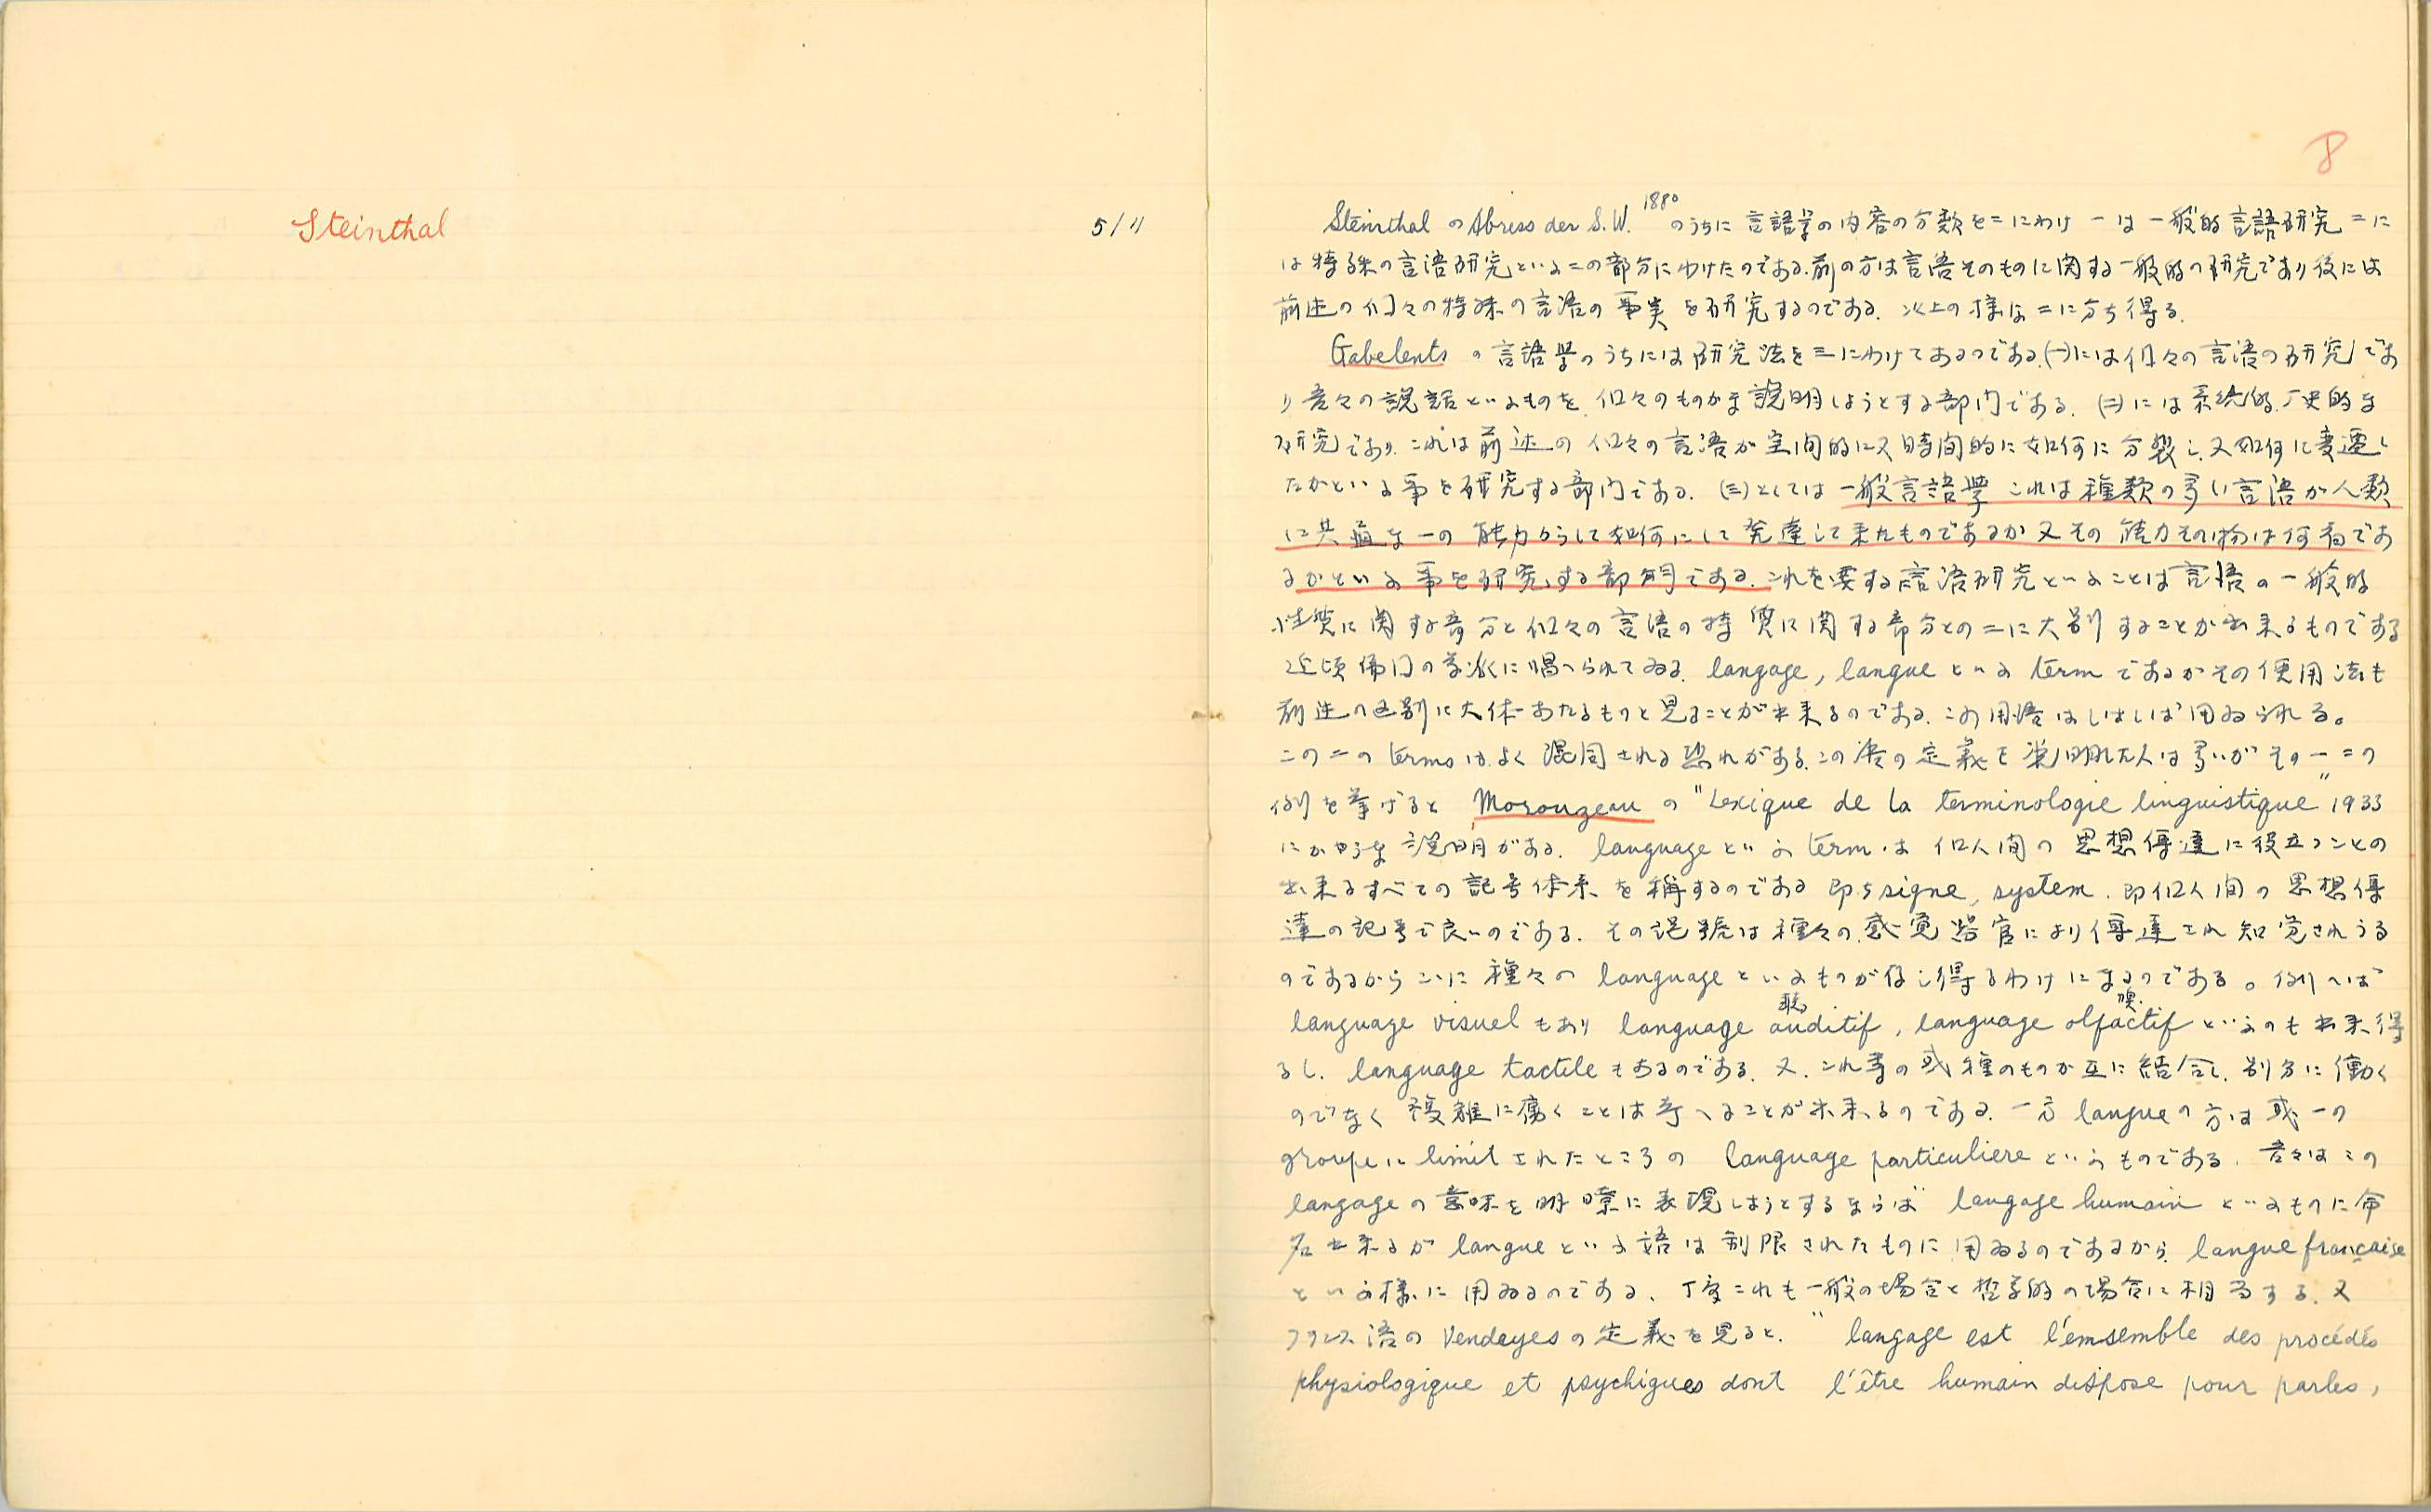 Steinthal
5/11
8
Steinthal のAbress der S.W. 1880 のうちに 言語学の内容の分類を二にわけ 一は 一般的言語研究 二に
は特殊の言語研究といふ二の部分にわけたのである.前の方は言語そのものに関する一般的の研究であり後には
前述の個々の特殊の言語の事実を研究するのである. 以上の様な二に分ち得る.
Gabelents の言語學のうちには研究法を三にわけてあるのである.(一)には個々の言語の研究であ
り吾々の説話といふものを、個々のものかま説明しようとする部門である. (二)には系統的、历史的ま
研究であり.これは前述の個々の言語が空間的に又時間的に如何に分裂し、又如何に変遷し
たかといふ事を研究する部門である. (三)としては一般言語學 これは種類の多い言語が人類
に共通な一の能力からして如何にして発達して来たものであるか又その能力その物は何であ
るかといふ事を研究する部門である. これを要する言語研究といふことは言語の一般的
性質に関する部分と個々の言語の特質に関する部分との二に大別することが出来るものである
近頃佛门の学派に唱へられてゐる. langage, langue といふ term であるがその使用法も
前述の区別に大体あたるものと見ることが出来るのである.この用語はしばしば用ゐられる。
この二の terms はよく混同される恐れがある.この語の定義を説明した人は多いがその一二の
例を挙げると Morouzeau の "Lexique de la terminologie linguistique" 1933
にかやうな説明がある. language といふ term は個人間の思想傳達に役立つことの
出来るすべての記号体系を稱するのである 即ち signe, system. 即個人間の思想傳
達の記号で良いのである. その記號は種々の感覚器官により傳達され知覚されうる
のであるからここに種々の language といふものが存し得るわけになるのである。例へば
language visuel もあり language 聴 auditif, language 嗅 olfactif といふのも出来得
るし. language tactile もあるのである. 又.これ等の或種のものが互に結合し.別方に働く
のでなく複雑に働くことは考へることが出来るのである. 一方 langue の方は或一の
groupe に limit されたところの language particuliere といふものである. 吾々はこの
langage の意味を明瞭に表現しようとするならば langage humain といふものに命
名出来るが langue といふ語は制限されたものに用ゐるのであるから langue française
といふ様に用ゐるのである、丁度これも一般の場合と哲学的の場合に相当する. 又
フランス語の Vendeyes の定義を見ると. "langage est l'emsemble des procédés
physiologique et psychigues dont l'être humain dispose pour parles,